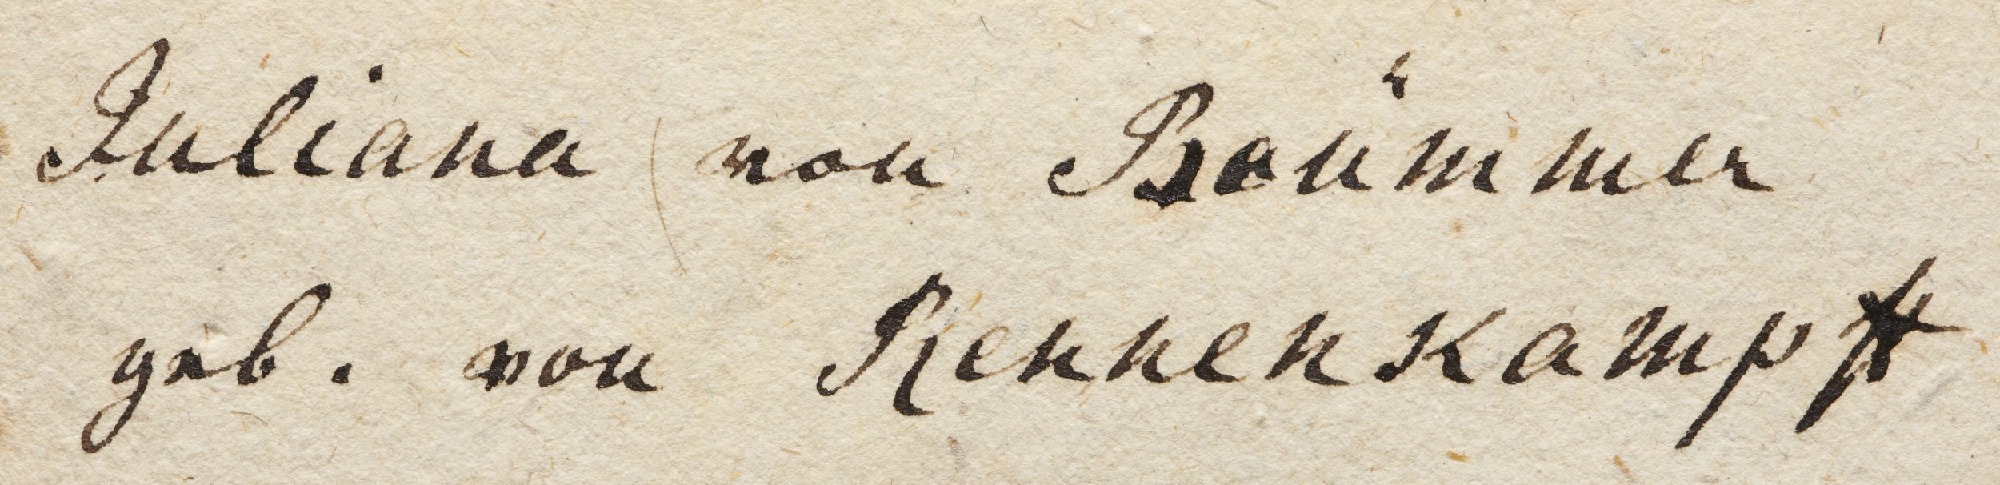 Juliana von Boümmer
geb. von Rennenkampff